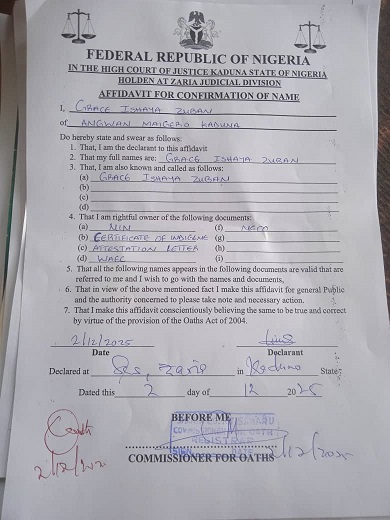 FEDERAL REPUBLIC OF NIGERIA
IN THE HIGH COURT OF JUSTICE KADUNA STATE OF NIGERIA
HOLDEN AT ZARIA JUDICIAL DIVISION
AFFIDAVIT FOR CONFIRMATION OF NAME
I, GRACE ISHAYA ZUBAN
of ANGWAN MAIGERO KADUNA
Do hereby state and swear as follows:
1. That, I am the declarant to this affidavit
2. That my full names are; GRACE ISHAYA ZUBAN
3. That, I am also known and called as follows:
(a) GRACE ISHAYA ZUBAN
(b)
(c)
(d)
4. That I am rightful owner of the following documents:
(a) NIN (f) NECO
(b) CERTIFICATE OF INDIGENE (g)
(c) ATTESTATION LETTER (h)
(d) WAEC (i)
5. That all the following names appears in the following documents are valid that are
referred to me and I wish to go with the names and documents,
6. That in view of the above mentioned fact I make this affidavit for general Public
and the authority concerned to please take note and necessary action.
7. That I make this affidavit conscientiously believing the same to be true and correct
by virtue of the provision of the Oaths Act of 2004.
2/12/2025
Date Declarant
Declared at Zaria in Kaduna State
Dated this 2 day of 12 2025
BEFORE ME
COMMISSIONER FOR OATHS